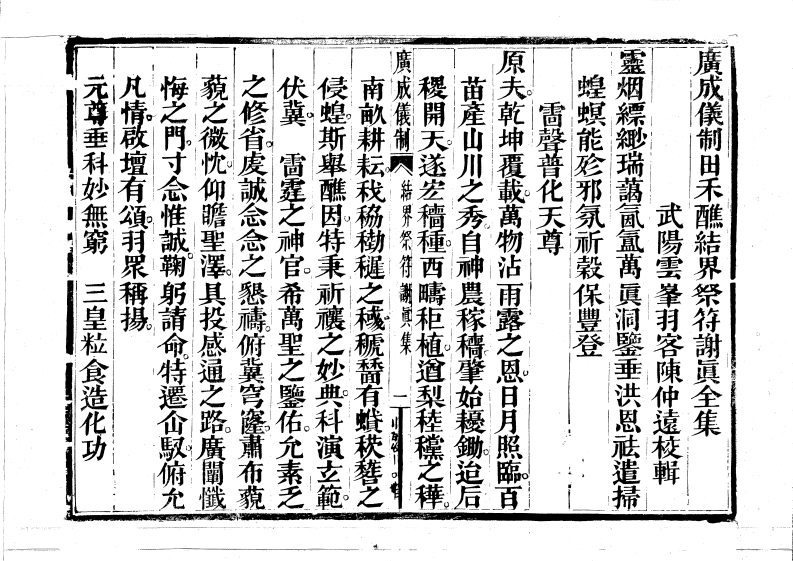 廣成儀制田禾醮結界祭符謝眞全集
武陽雲峯羽客陳仲遠校輯
靈烟縹緲瑞藹氤氳萬眞洞鑒垂洪恩祛遣掃
蝗螟能殄邪氛祈穀保豐登
雷聲普化天尊
原夫乾坤覆載萬物沾雨露之恩日月照臨百
苗產山川之秀自神農稼穡肇始耰鋤迨后
稷開天遂宏穡種西疇秬植遒犁稑𪐴之穜
廣成儀制 結界祭符謝眞集 一
南畝耕耘秡稊之有
侵蝗斯舉醮因特秉祈禳之妙典科演玄範
伏冀 雷霆之神官希萬聖之鑒佑允素乏
之修省虔誠念念之懇禱俯冀穹窿肅布藐
藐之微忱仰瞻聖澤具投感通之路廣闡懺
悔之門寸念惟誠鞠躬請命特遷仚馭俯允
凡情啟壇有頌羽眾稱揚
元尊垂科妙無窮 三皇粒食造化功